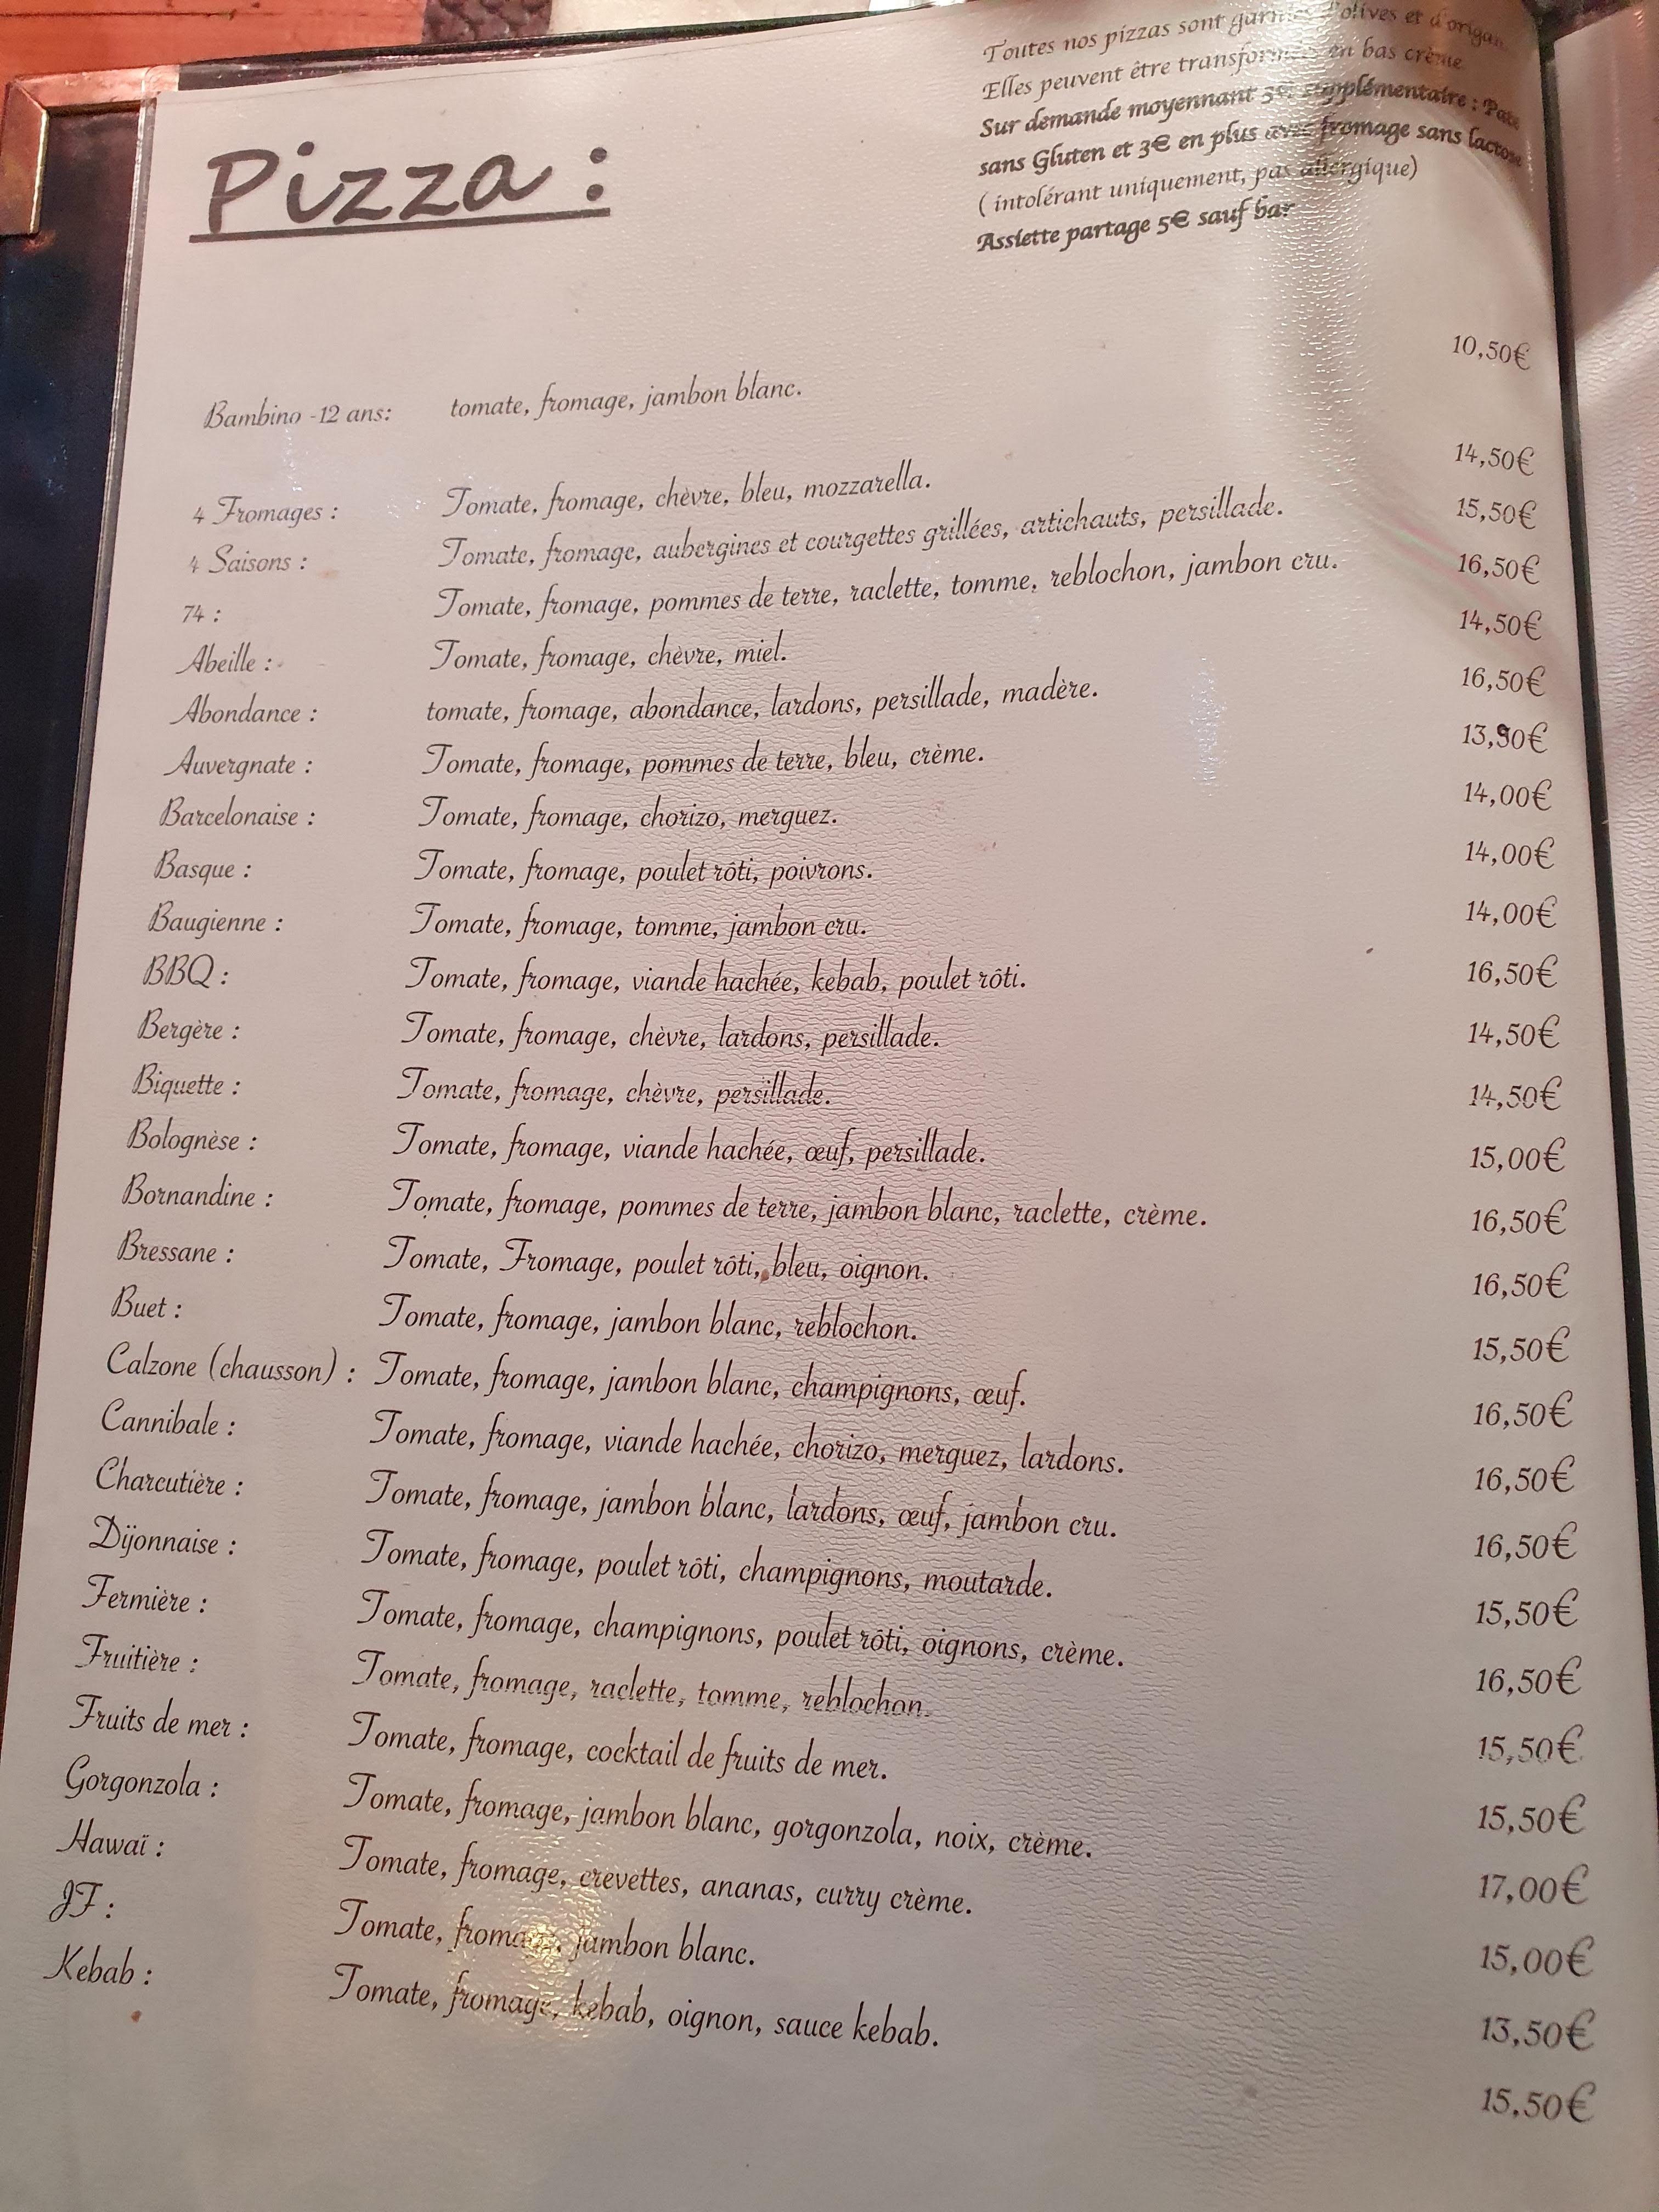 Toutes nos pizzas sont garnies d'olives et d'origan
Elles peuvent être transformées en bas crème
Sur demande moyennant 3€ supplémentaire : Pate
sans Gluten et 3€ en plus avec fromage sans lactose
( intolérant uniquement, pas allergique)
Assiette partage 5€ sauf bar
Pizza :
Bambino -12 ans: tomate, fromage, jambon blanc. 10,50€
4 Fromages : Tomate, fromage, chèvre, bleu, mozzarella. 14,50€
4 Saisons : Tomate, fromage, aubergines et courgettes grillées, artichauts, persillade. 15,50€
74 : Tomate, fromage, pommes de terre, raclette, tomme, reblochon, jambon cru. 16,50€
Abeille : Tomate, fromage, chèvre, miel. 14,50€
Abondance : tomate, fromage, abondance, lardons, persillade, madère. 16,50€
Auvergnate : Tomate, fromage, pommes de terre, bleu, crème.
Barcelonaise : Tomate, fromage, chorizo, merguez. 14,00€
Basque : Tomate, fromage, poulet rôti, poivrons. 14,00€
Baugienne : Tomate, fromage, tomme, jambon cru. 14,00€
BBQ : Tomate, fromage, viande hachée, kebab, poulet rôti. 16,50€
Bergère : Tomate, fromage, chèvre, lardons, persillade. 14,50€
Biquette : Tomate, fromage, chèvre, persillade. 14,50€
Bolognèse : Tomate, fromage, viande hachée, œuf, persillade. 15,00€
Bornandine : Tomate, fromage, pommes de terre, jambon blanc, raclette, crème. 16,50€
Bressane : Tomate, Fromage, poulet rôti, bleu, oignon. 16,50€
Buet : Tomate, fromage, jambon blanc, reblochon. 15,50€
Calzone (chausson) : Tomate, fromage, jambon blanc, champignons, œuf. 16,50€
Cannibale : Tomate, fromage, viande hachée, chorizo, merguez, lardons. 16,50€
Charcutière : Tomate, fromage, jambon blanc, lardons, œuf, jambon cru. 16,50€
Dijonnaise : Tomate, fromage, poulet rôti, champignons, moutarde. 15,50€
Fermière : Tomate, fromage, champignons, poulet rôti, oignons, crème. 16,50€
Fruitière : Tomate, fromage, raclette, tomme, reblochon. 15,50€
Fruits de mer : Tomate, fromage, cocktail de fruits de mer. 15,50€
Gorgonzola : Tomate, fromage, jambon blanc, gorgonzola, noix, crème. 17,00€
Hawaï : Tomate, fromage, crevettes, ananas, curry crème. 15,00€
JF : Tomate, fromage, jambon blanc. 13,50€
Kebab : Tomate, fromage, kebab, oignon, sauce kebab. 15,50€